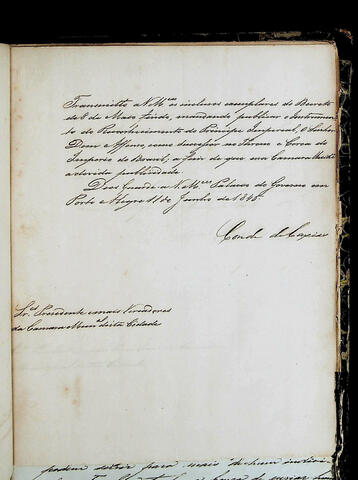 Transmitto a V.Mces os inclusos exemplares do Decreto
de 8 de Maio findo, mandando publicar o Instrumento
do Reconhecimento do Principe Imperial, o Senhor
Dom Affonso, como Successor ao Throno e Coroa do
Imperio do Brasil, a fim de que essa Camara lhes dê
a devida publicidade.
Deos Guarde a V.Mces Palacio do Governo em
Porto Alegre 11 de Junho de 1845.
Conde de Caxias
Srs. Presidente e mais Vereadores
da Camara Munal desta Cidade
podem deixar para